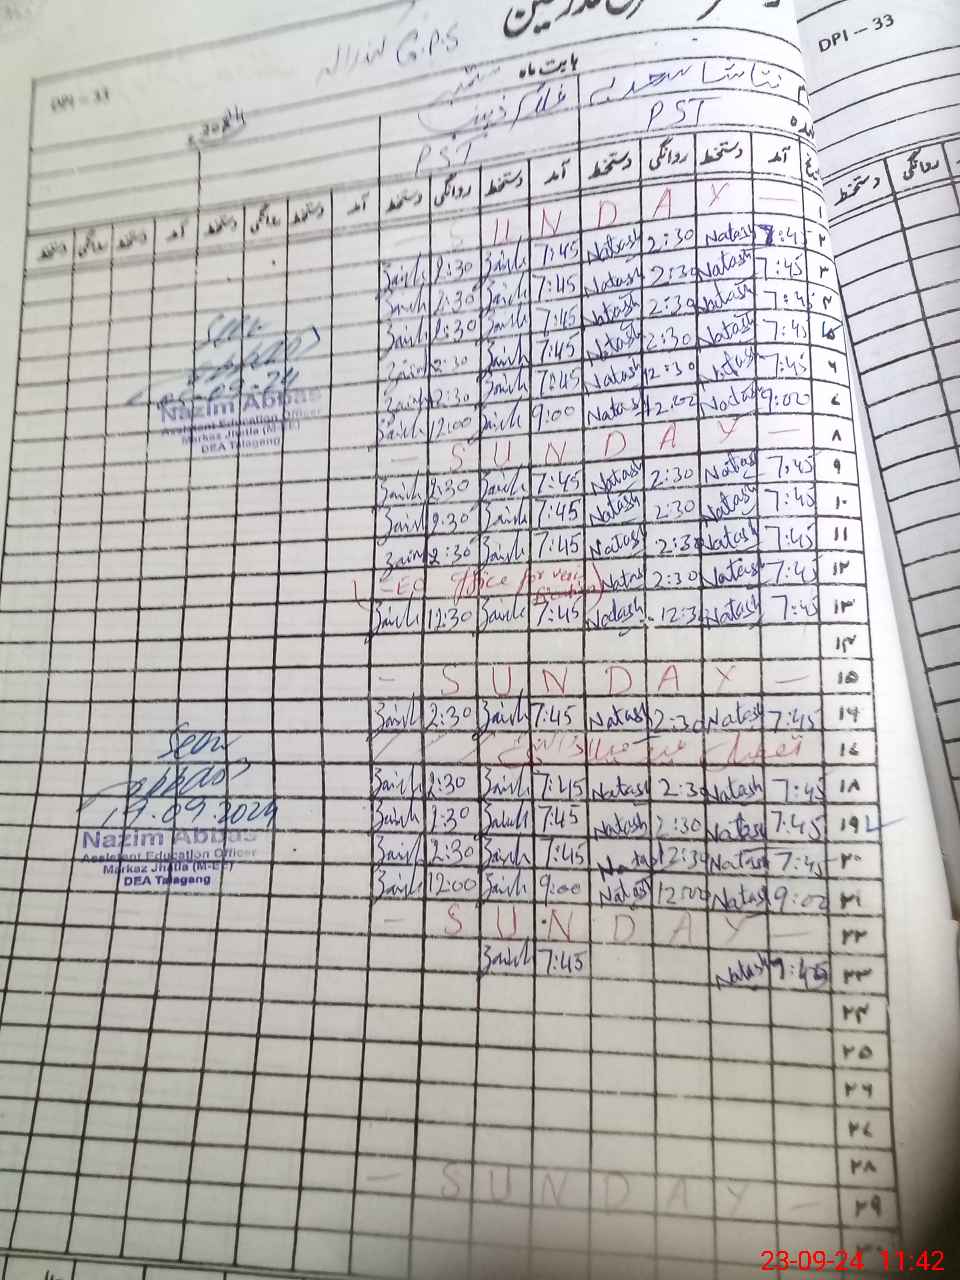 DPI - 33
DPI - 33
G.P.S
بابت ماہ ستمبر
2024
PST PST
تاریخ آمد دستخط روانگی دستخط آمد دستخط روانگی دستخط آمد دستخط روانگی دستخط آمد دستخط روانگی دستخط
دستخط روانگی
۱ — S U N D A Y —
۲ 7:45 Natash 2:30 Natash 7:45 Zainb 2:30 Zainb
۳ 7:45 Natash 2:30 Natash 7:45 Zainb 2:30 Zainb
۴ 7:45 Natash 2:30 Natash 7:45 Zainb 2:30 Zainb
۵ 7:45 Natash 2:30 Natash 7:45 Zainb 2:30 Zainb
۶ 7:45 Natash 12:30 Natash 7:45 Zainb 12:30 Zainb
۷ 9:00 Natash 12:00 Natash 9:00 Zainb 12:00 Zainb
۸ — S U N D A Y —
۹ 7:45 Natash 2:30 Natash 7:45 Zainb 2:30 Zainb
۱۰ 7:45 Natash 2:30 Natash 7:45 Zainb 2:30 Zainb
۱۱ 7:45 Natash 2:30 Natash 7:45 Zainb 2:30 Zainb
۱۲ 7:45 Natash 2:30 Natash (-EO office for verification)
۱۳ 7:45 Natash 12:30 Natash 7:45 Zainb 12:30 Zainb
۱۴
۱۵ — S U N D A Y —
۱۶ 7:45 Natash 2:30 Natash 7:45 Zainb 2:30 Zainb
۱۷ تعطیل عید میلاد النبی
۱۸ 7:45 Natash 2:30 Natash 7:45 Zainb 2:30 Zainb
۱۹ 7:45 Natash 2:30 Natash 7:45 Zainb 2:30 Zainb
۲۰ 7:45 Natash 12:30 Natash 7:45 Zainb 2:30 Zainb
۲۱ 9:00 Natash 12:00 Natash 9:00 Zainb 12:00 Zainb
۲۲ — S U N D A Y —
۲۳ 7:45 Natash 7:45 Zainb
۲۴
۲۵
۲۶
۲۷
۲۸
۲۹ — S U N D A Y —
۳۰
Seen
Nazim Abbas
Assistent Education Officer
Markaz Jhatla (M-EE)
DEA Talagang
Seen
19.09.2024
Nazim Abbas
Assistent Education Officer
Markaz Jhatla (M-EE)
DEA Talagang
23-09-24 11:42